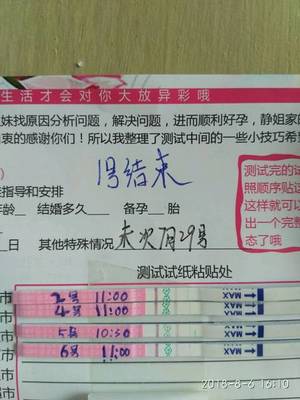 生活才会对你大放异彩哦
妹找原因分析问题，解决问题，进而顺利好孕，静姐家的
衷的感谢你们！所以我整理了测试中间的一些小技巧希
1号结束
指导和安排
年龄__ 结婚多久____ 备孕__胎
日 其他特殊情况 末次7月29号
测试完的试
照顺序贴
这样就可以
出一个完整
态了哦
测试试纸粘贴处
2号 11:00 MAX
4号 11:00 MAX
5号 10:30 MAX
6号 11:00 MAX
2018-8-6 16:10